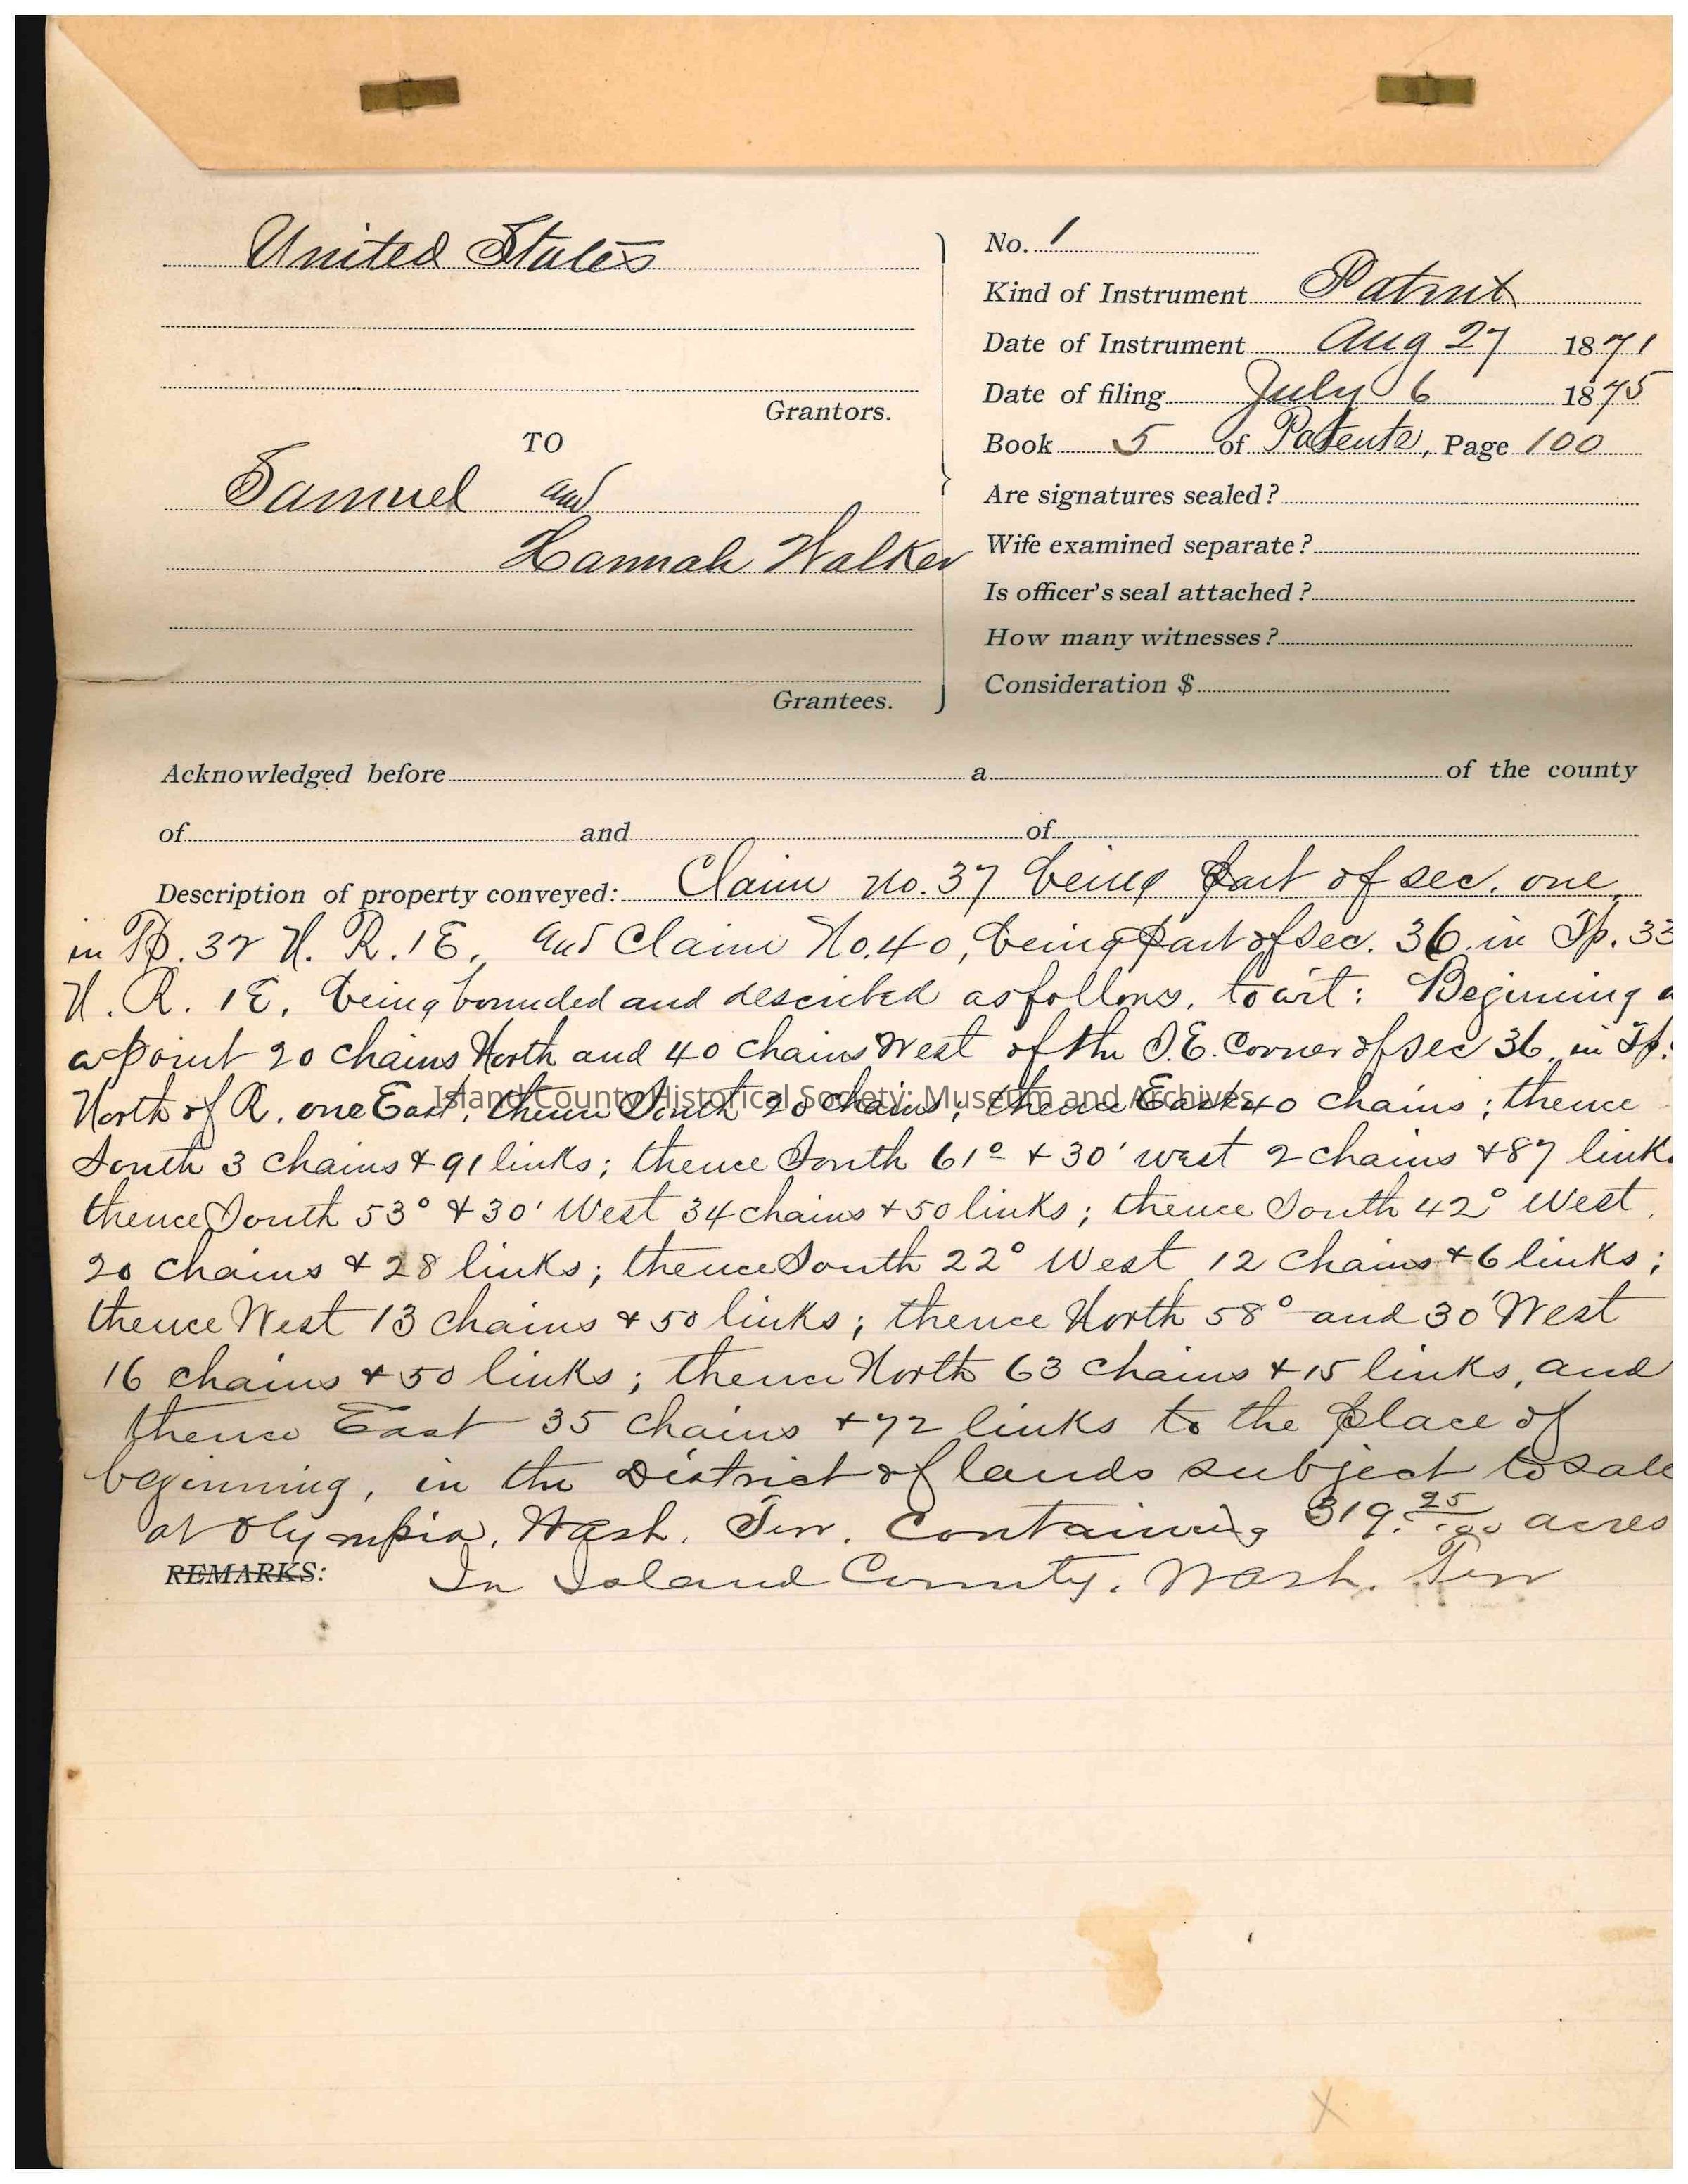 United States
No. 1
Kind of Instrument Patent
Date of Instrument Aug 27 1871
Date of filing July 6 1875
Grantors.
Book 5 of Patents, Page 100
TO
Samuel and
Are signatures sealed?
Hannah Walker
Wife examined separate?
Is officer's seal attached?
How many witnesses?
Consideration $
Grantees.
Acknowledged before a of the county
of and of
Description of property conveyed: Claim No. 37 being part of sec. one
in Tp. 32 N. R. 1 E., and Claim No. 40, being part of sec. 36 in Tp. 33
N. R. 1 E. being bounded and described as follows, to wit: Beginning a
a point 20 chains North and 40 chains West of the S.E. Corner of sec 36 in Tp.
North of R. one East; thence South 20 chains; thence East 40 chains; thence
Island County Historical Society: Museum and Archives
South 3 chains + 91 links; thence South 61° + 30' west 2 chains + 87 link
thence South 53° + 30' West 34 chains + 50 links; thence South 42° West
20 chains + 28 links; thence South 22° West 12 chains + 6 links;
thence West 13 chains + 50 links; thence North 58° and 30' West
16 chains + 50 links; thence North 63 chains + 15 links, and
thence East 35 chains + 72 links to the place of
beginning, in the District of lands subject to sale
at Olympia, Wash. Terr. Containing 319. 25/100 acres
REMARKS: In Island County. Wash. Terr
X